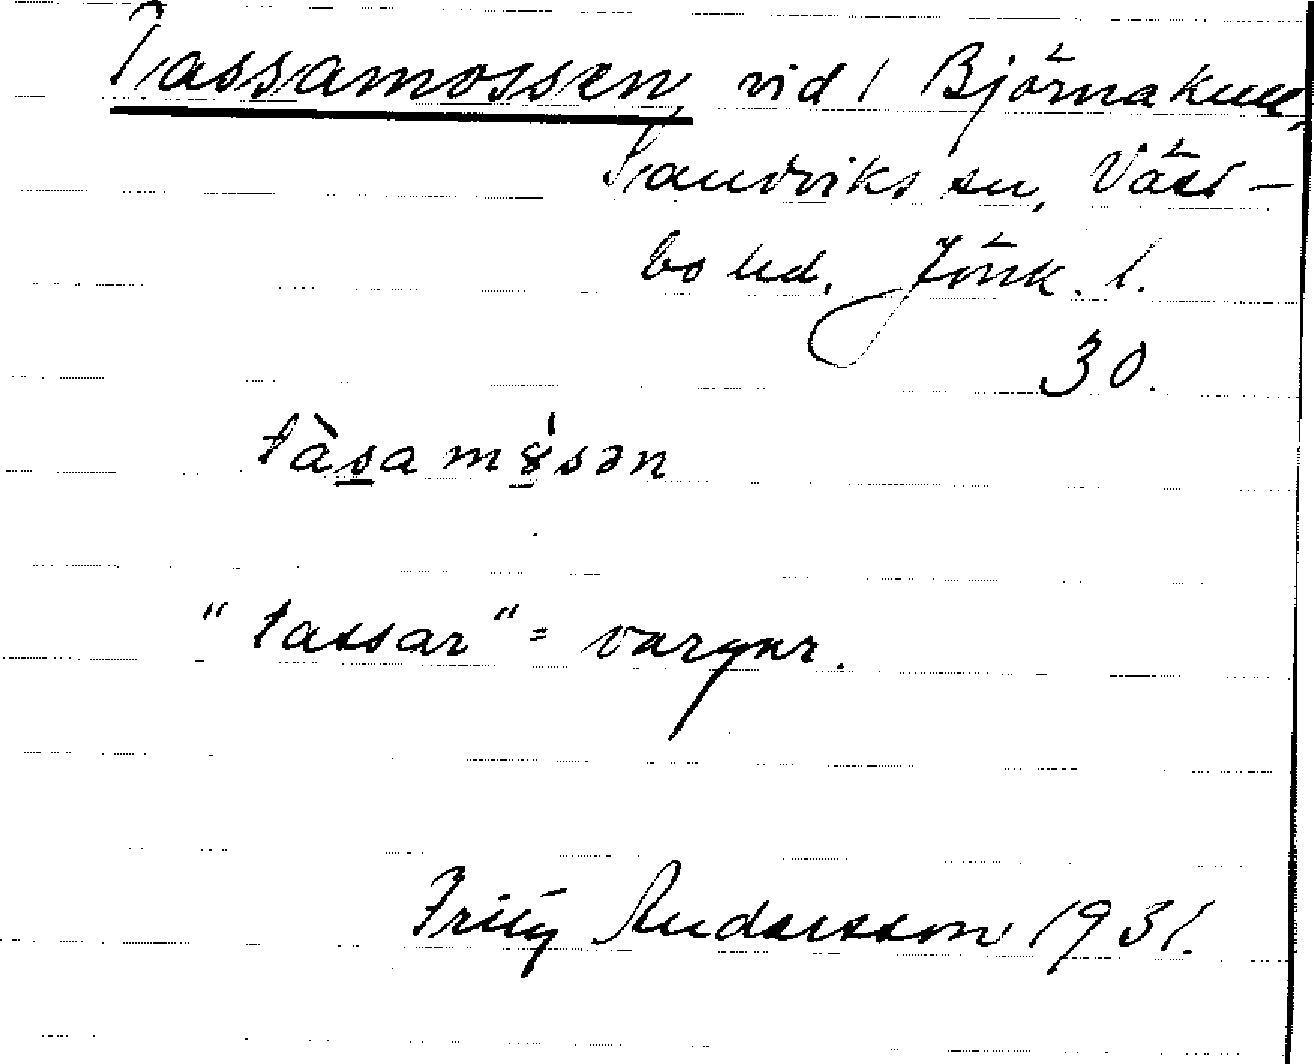 Tassamossen, vid 1 Björnakull,
Sandviks sn, Väst-
bo hd, Jönk. l.
30.
tàsa mö̀sən
"tassar" = vargar.
Fritz Andersson 1931.